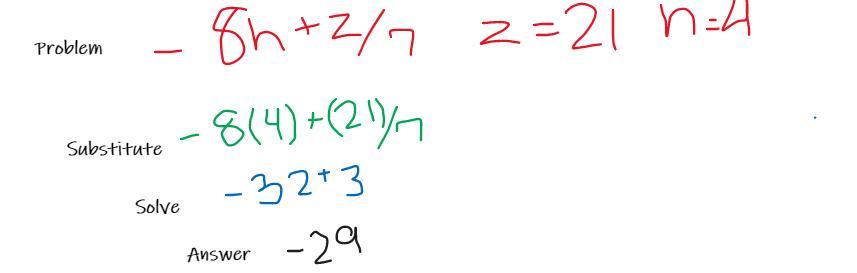 Problem - 8n + z/7 z = 21 n = 4
Substitute - 8(4) + (21)/7
Solve - 32 + 3
Answer - 29